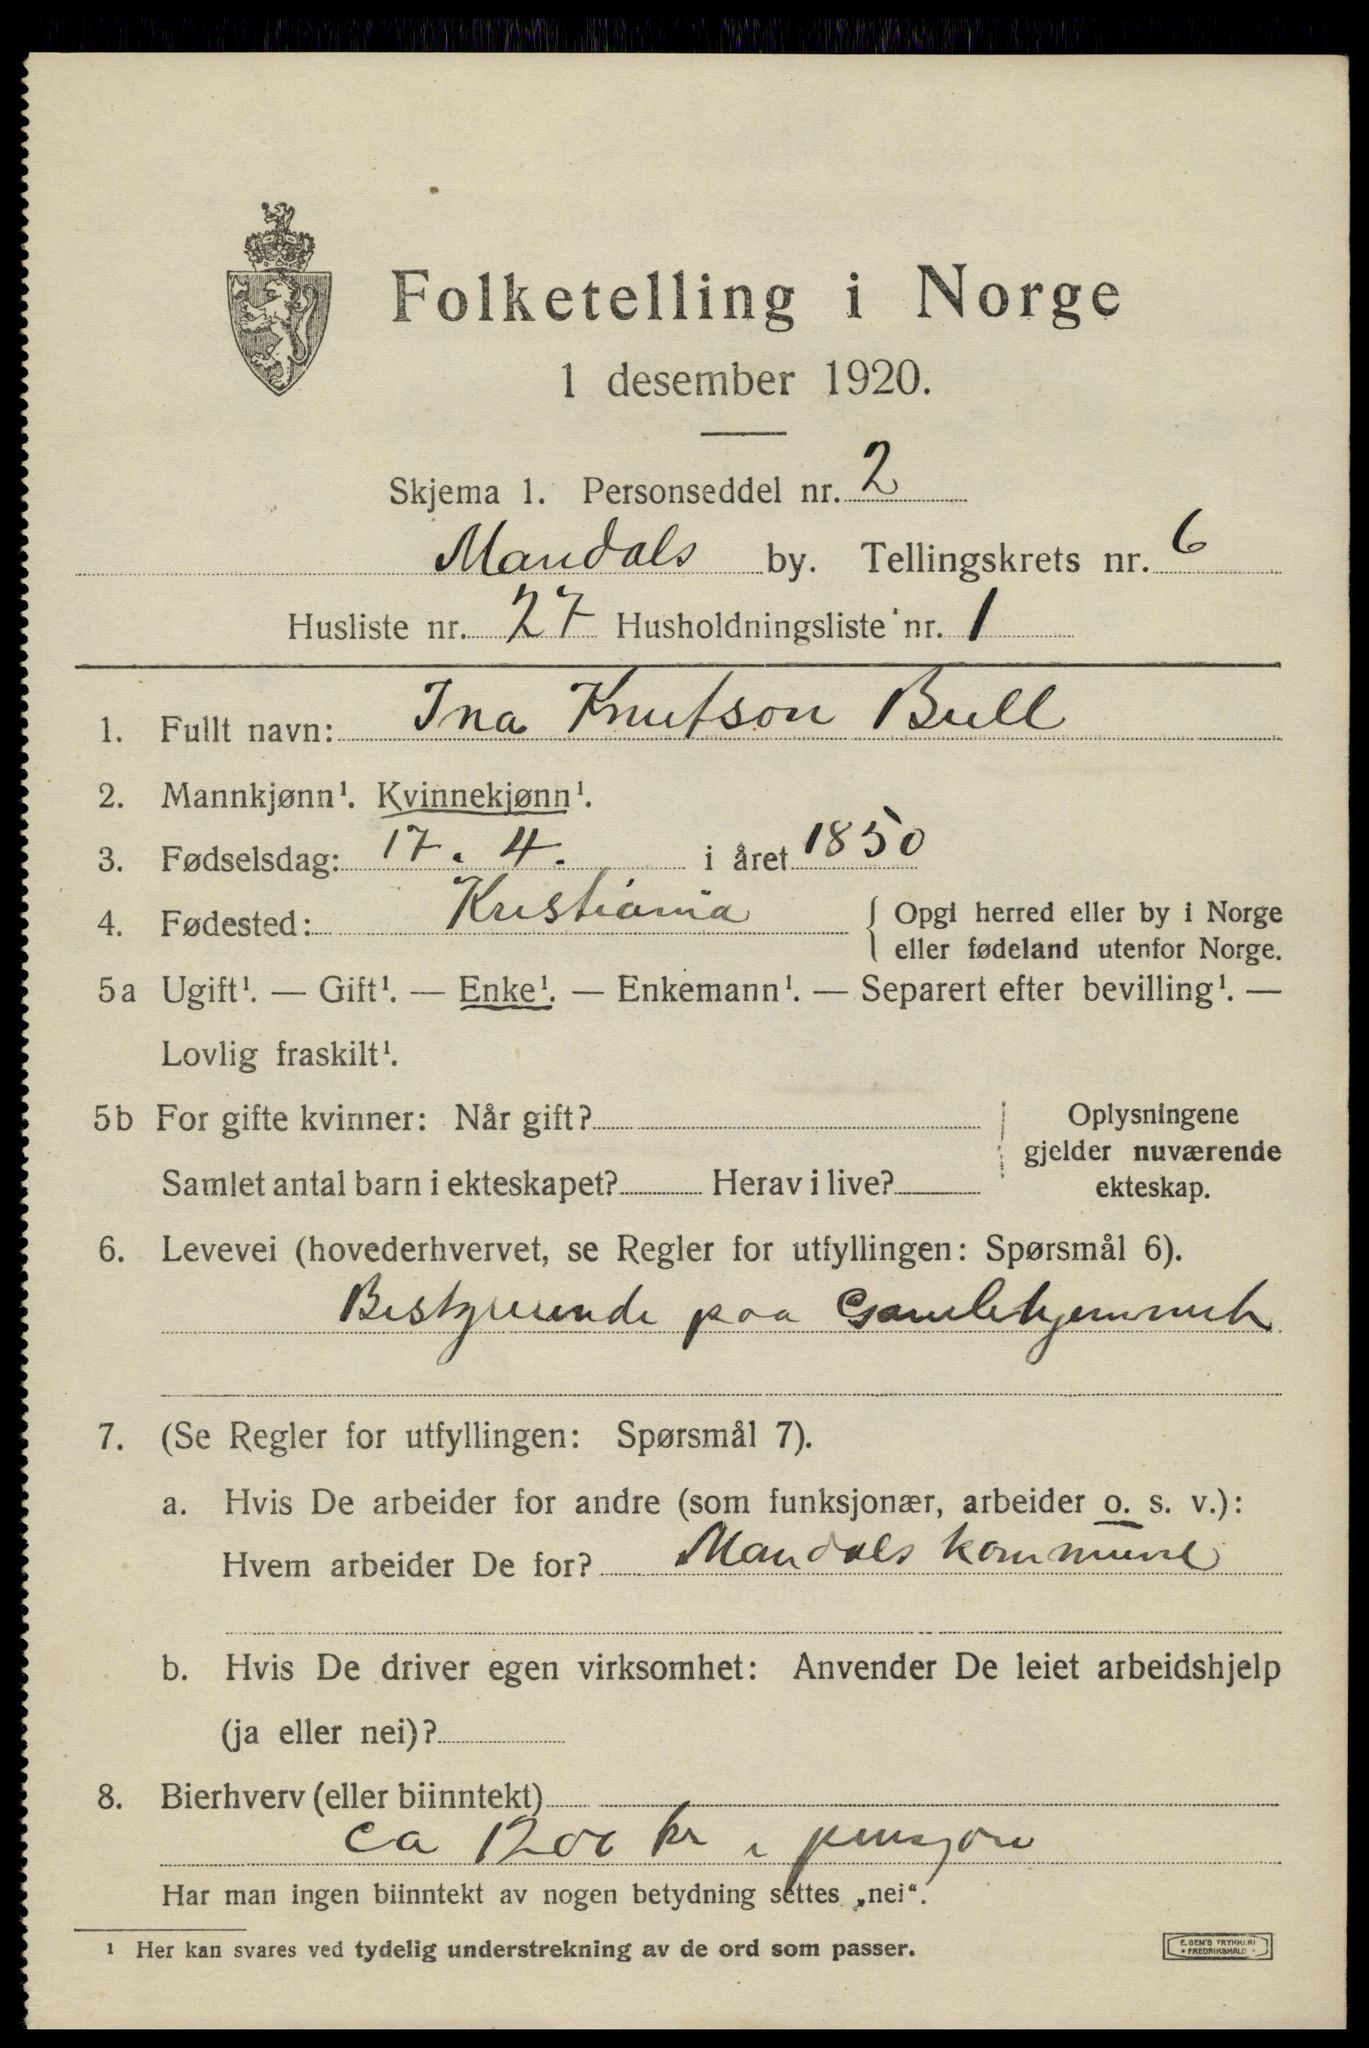 Folketelling i Norge
1 desember 1920.
Skjema 1. Personseddel nr. 2
Mandals by. Tellingskrets nr. 6
Husliste nr. 27 Husholdningsliste nr. 1
1. Fullt navn: Ina Knutson Bull
2. Mannkjønn¹. Kvinnekjønn¹.
3. Fødselsdag: 17. 4. i året 1850
4. Fødested: Kristiania { Opgi herred eller by i Norge
eller fødeland utenfor Norge.
5a Ugift¹. — Gift¹. — Enke¹. — Enkemann¹. — Separert efter bevilling¹. —
Lovlig fraskilt¹.
5b For gifte kvinner: Når gift?
Samlet antal barn i ekteskapet? Herav i live?
Oplysningene
gjelder nuværende
ekteskap.
6. Levevei (hovederhvervet, se Regler for utfyllingen: Spørsmål 6).
Bestyrerinde paa Gamlehjemmet
7. (Se Regler for utfyllingen: Spørsmål 7).
a. Hvis De arbeider for andre (som funksjonær, arbeider o. s. v.):
Hvem arbeider De for? Mandals kommune
b. Hvis De driver egen virksomhet: Anvender De leiet arbeidshjelp
(ja eller nei)?
8. Bierhverv (eller biinntekt)
ca 1200 kr i pensjon
Har man ingen biinntekt av nogen betydning settes „nei“.
¹ Her kan svares ved tydelig understrekning av de ord som passer.
E. SEM'S TRYKKERI
• FREDRIKSHALD •